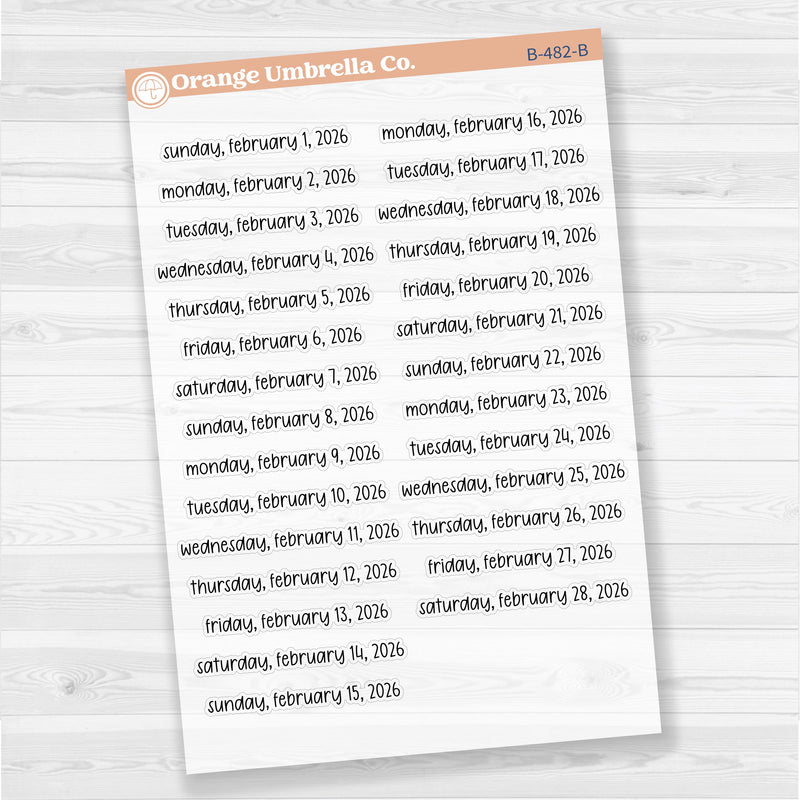 Orange Umbrella Co.
B-482-B
sunday, february 1, 2026
monday, february 2, 2026
tuesday, february 3, 2026
wednesday, february 4, 2026
thursday, february 5, 2026
friday, february 6, 2026
saturday, february 7, 2026
sunday, february 8, 2026
monday, february 9, 2026
tuesday, february 10, 2026
wednesday, february 11, 2026
thursday, february 12, 2026
friday, february 13, 2026
saturday, february 14, 2026
sunday, february 15, 2026
monday, february 16, 2026
tuesday, february 17, 2026
wednesday, february 18, 2026
thursday, february 19, 2026
friday, february 20, 2026
saturday, february 21, 2026
sunday, february 22, 2026
monday, february 23, 2026
tuesday, february 24, 2026
wednesday, february 25, 2026
thursday, february 26, 2026
friday, february 27, 2026
saturday, february 28, 2026